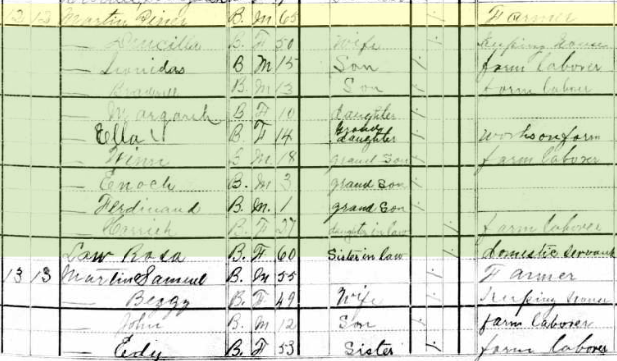 12 12 Martin B. M 65 Farmer
— B. F 50 Wife Keeping House
— Leonidas B M 15 Son farm laborer
— B M 13 Son farm labor
— B F 10 daughter
Ella V B F 14 Grand daughter works on farm
— M 18 grand son farm laborer
— Enoch B. M 3 grand son
— Ferdinand B. M. 1 grand son
— B F 27 daughter in law farm laborer
Law Rosa B. F 60 Sister in law domestic servant
13 13 Martin Samuel B. M 55 Farmer
— B. F 49 Wife Keeping House
— John B. M 12 Son farm laborer
— Edy B. F 53 Sister farm labor